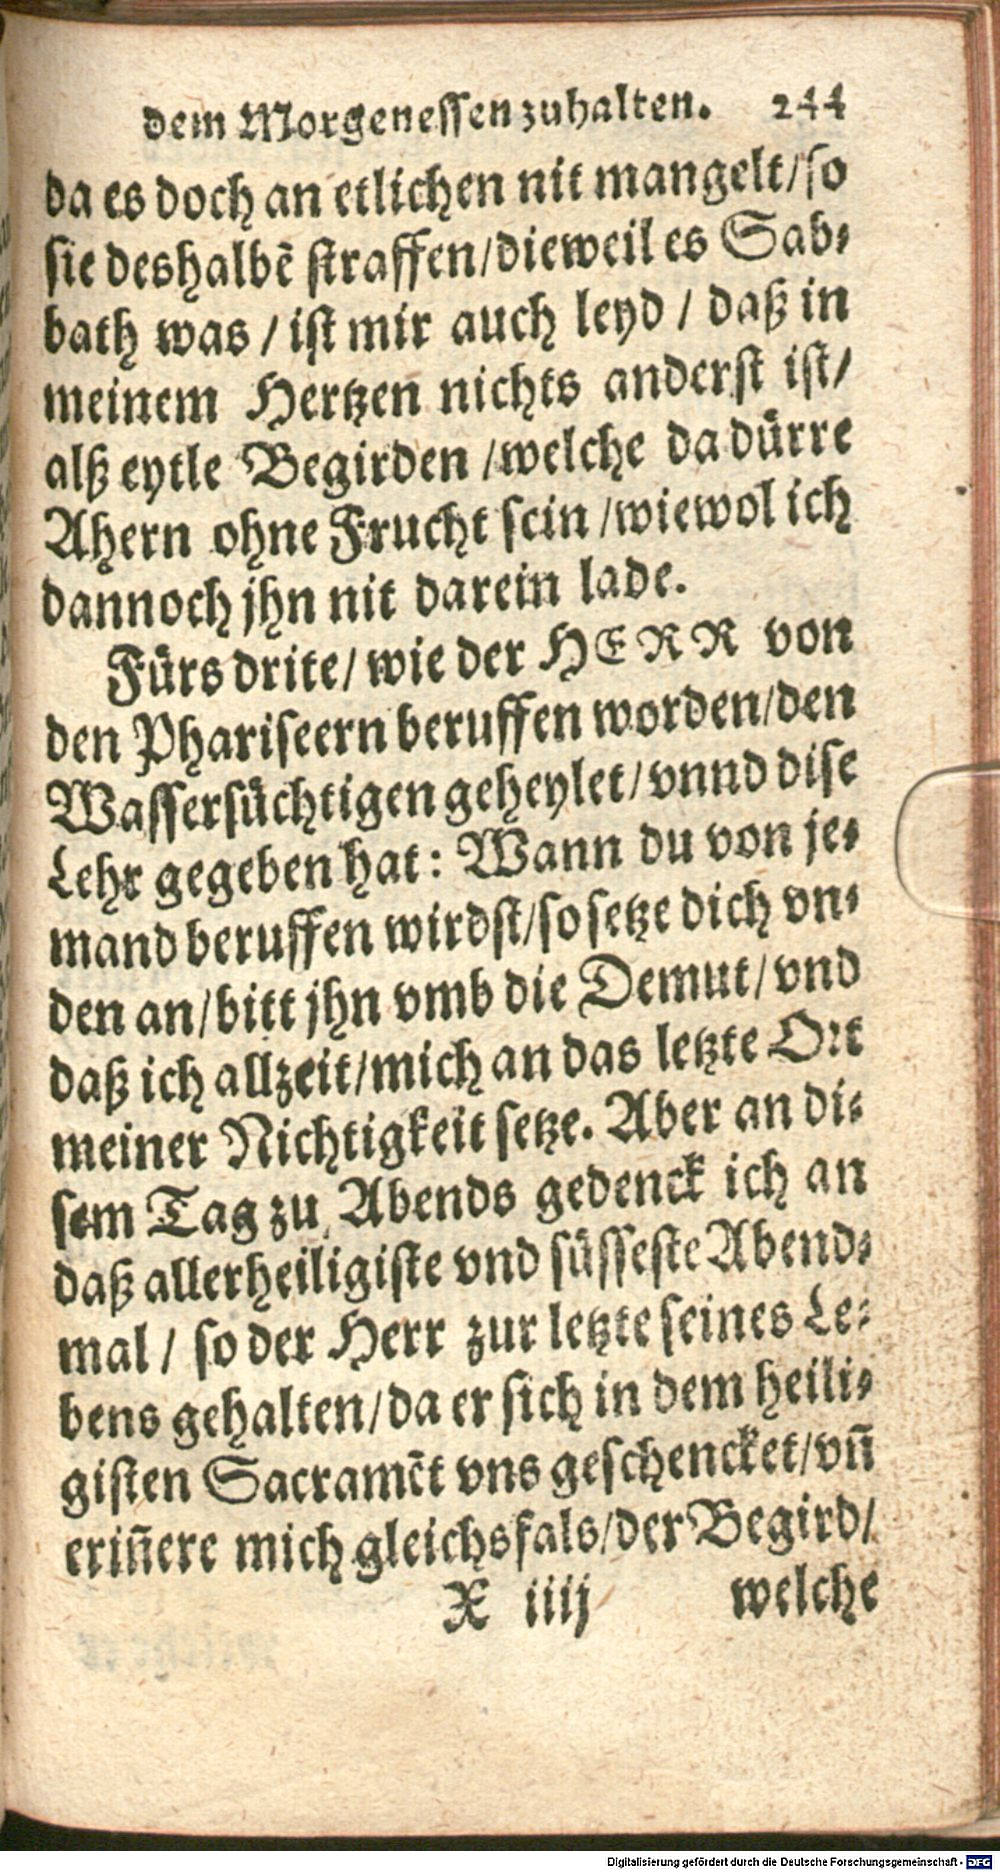 dem Morgenessen zuhalten. 244
da es doch an etlichen nit mangelt/so
sie deshalbẽ straffen/dieweil es Sab-
bath was / ist mir auch leyd / daß in
meinem Hertzen nichts anderst ist/
alß eytle Begirden /welche da dürre
Ahern ohne Frucht sein /wiewol ich
dannoch jhn nit darein lade.
Fürs drite/ wie der HERR von
den Phariseern beruffen worden/den
Wassersüchtigen geheylet/vnnd dise
Lehr gegeben hat: Wann du von je-
mand beruffen wirdst/so setze dich vn-
den an/bitt jhn vmb die Demut/vnd
daß ich allzeit/mich an das letzte Ort
meiner Nichtigkeit setze. Aber an di-
sem Tag zu Abends gedenck ich an
daß allerheiligiste vnd süsseste Abend-
mal / so der Herr zur letzte seines Le-
bens gehalten/da er sich in dem heili-
gisten Sacramẽt vns geschencket/vñ
eriñere mich gleichsfals/der Begird/
X iiij welche
Digitalisierung gefördert durch die Deutsche Forschungsgemeinschaft - DFG